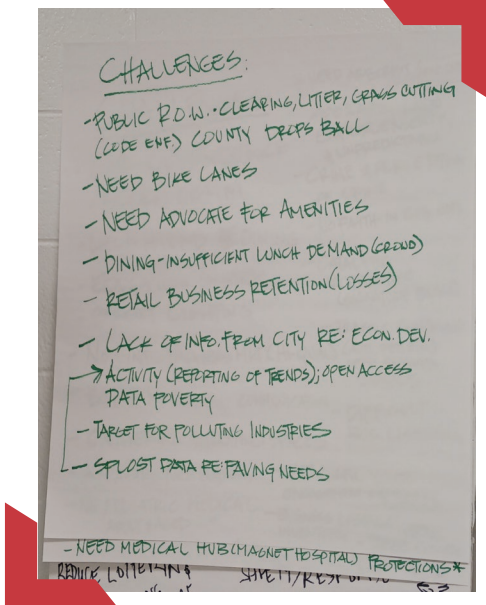 CHALLENGES:
- PUBLIC R.O.W. - CLEARING, LITTER, GRASS CUTTING
(CODE ENF.) COUNTY DROPS BALL
- NEED BIKE LANES
- NEED ADVOCATE FOR AMENITIES
- DINING - INSUFFICIENT LUNCH DEMAND (CROWD)
- RETAIL BUSINESS RETENTION (LOSSES)
- LACK OF INFO. FROM CITY RE: ECON. DEV.
→ ACTIVITY (REPORTING OF TRENDS); OPEN ACCESS
DATA POVERTY
- TARGET FOR POLLUTING INDUSTRIES
- SPLOST DATA RE: PAVING NEEDS
- NEED MEDICAL HUB (MAGNET HOSPITAL) PROTECTIONS*
REDUCE LOITERING